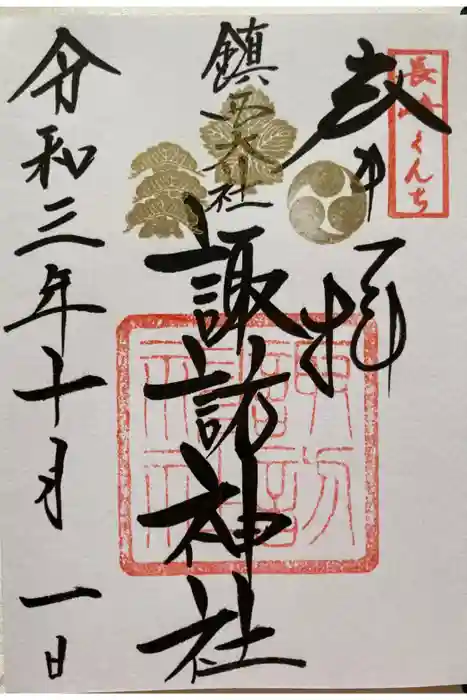 長崎くんち
奉拝
鎮西大社
諏訪神社
令和三年十月一日